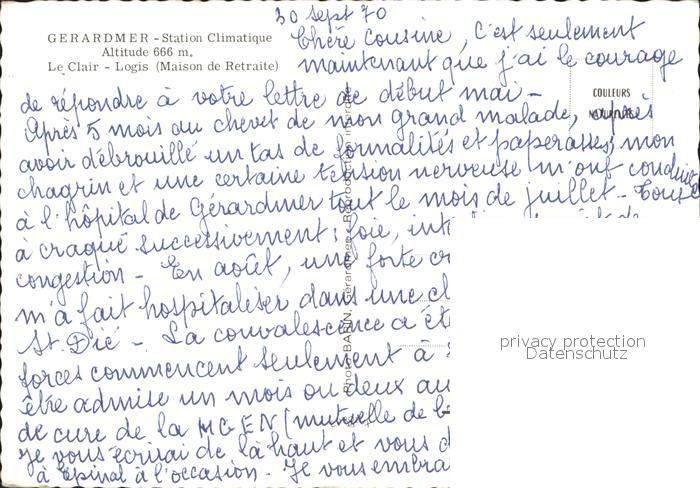 30 sept 70
GERARDMER - Station Climatique
Altitude 666 m.
Le Clair - Logis (Maison de Retraite)
Chère Cousine, c'est seulement
maintenant que j'ai le courage
de répondre à votre lettre de début mai -
COULEURS
Après 5 mois au chevet de mon grand malade, après
avoir débrouillé un tas de formalités et paperasses, mon
chagrin et une certaine tension nerveuse m'ont conduite
à l'hôpital de Gérardmer tout le mois de juillet - Tout
à craqué successivement : foie,
congestion - En août, une forte
m'a fait hospitaliser dans une
St. Dié - La convalescence a
forces commencent seulement à
être admise un mois ou deux au
de cure de la MGEN (mutuelle de
Je vous écrirai de là haut et vous
à Epinal à l'occasion - Je vous
Photo BABIN, Gérardmer - Reproduction
privacy protection
Datenschutz